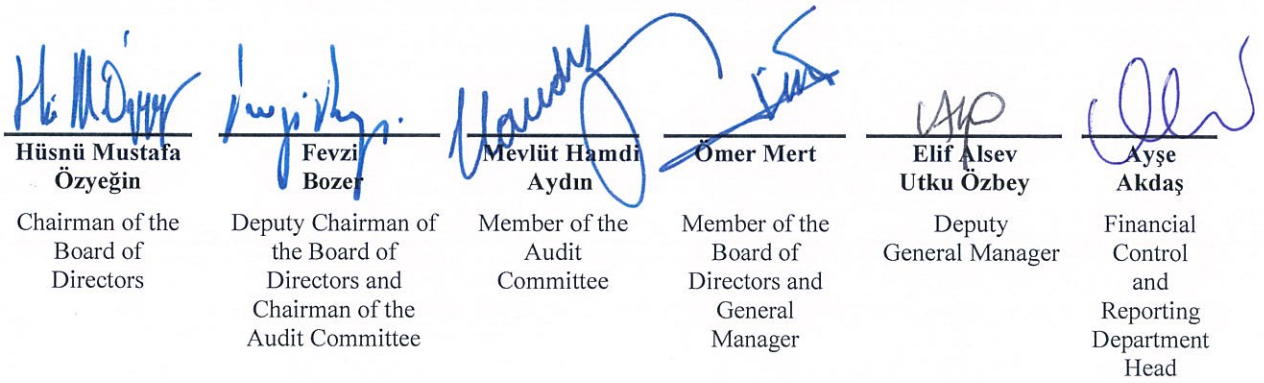 Hüsnü Mustafa
Özyeğin
Chairman of the
Board of
Directors
Fevzi
Bozer
Deputy Chairman of
the Board of
Directors and
Chairman of the
Audit Committee
Mevlüt Hamdi
Aydın
Member of the
Audit
Committee
Ömer Mert
Member of the
Board of
Directors and
General
Manager
Elif Alsev
Utku Özbey
Deputy
General Manager
Ayşe
Akdaş
Financial
Control
and
Reporting
Department
Head